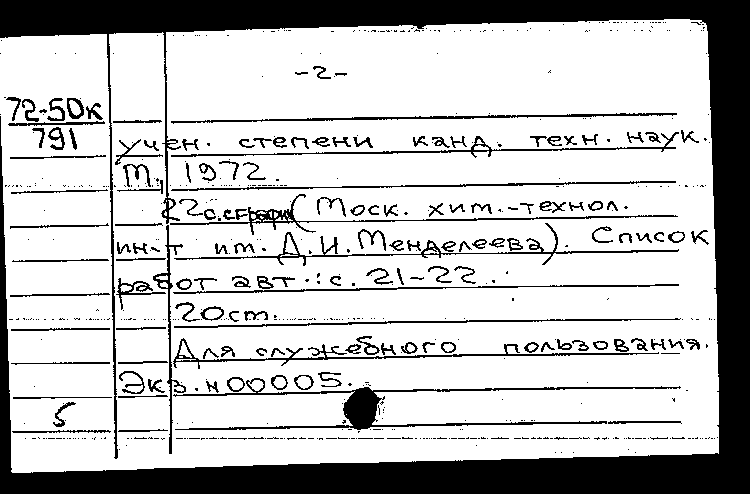 -2-
72-50к
791
учен. степени канд. техн. наук.
М., 1972.
22 с. с граф. (Моск. хим.-технол.
ин-т им. Д.И. Менделеева). Список
работ авт.: с. 21-22.
20 см.
Для служебного пользования.
Экз. н 00005.
5